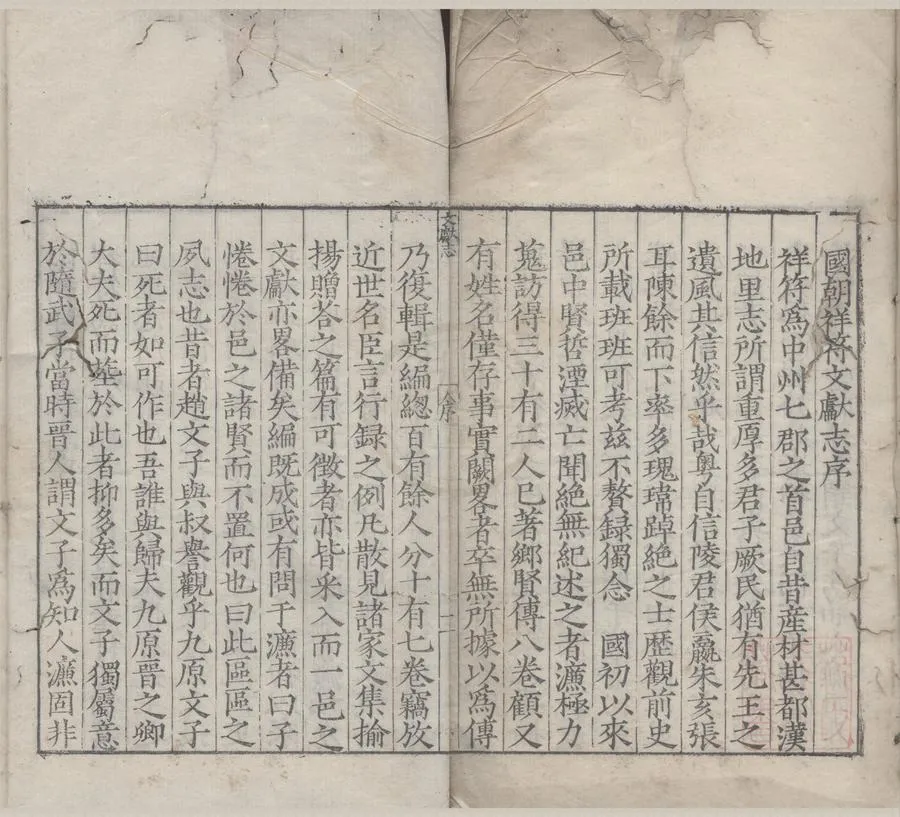 國朝祥符文獻志序
祥符為中州七郡之首邑自昔産材甚都漢
地里志所謂重厚多君子厥民猶有先王之
遺風其信然乎哉粵自信陵君侯嬴朱亥張
耳陳餘而下率多瑰瑋踔絶之士歷觀前史
所載班班可考兹不贅録獨念　國初以來
邑中賢哲湮滅亡聞絶無紀述之者濂極力
蒐訪得三十有二人巳著鄉賢傳八卷顧又
有姓名僅存事實闕畧者卒無所據以為傳
文獻志
序
二
乃復輯是編緫百有餘人分十有七卷竊放
近世名臣言行録之例凡散見諸家文集揄
揚贈荅之篇有可徵者亦皆采入而一邑之
文獻亦畧備矣編既成或有問于濂者曰子
惓惓於邑之諸賢而不置何也曰此區區之
夙志也昔者趙文子與叔譽觀乎九原文子
曰死者如可作也吾誰與歸夫九原晋之卿
大夫死而塟於此者抑多矣而文子獨屬意
於隨武子當時晋人謂文子為知人濂固非